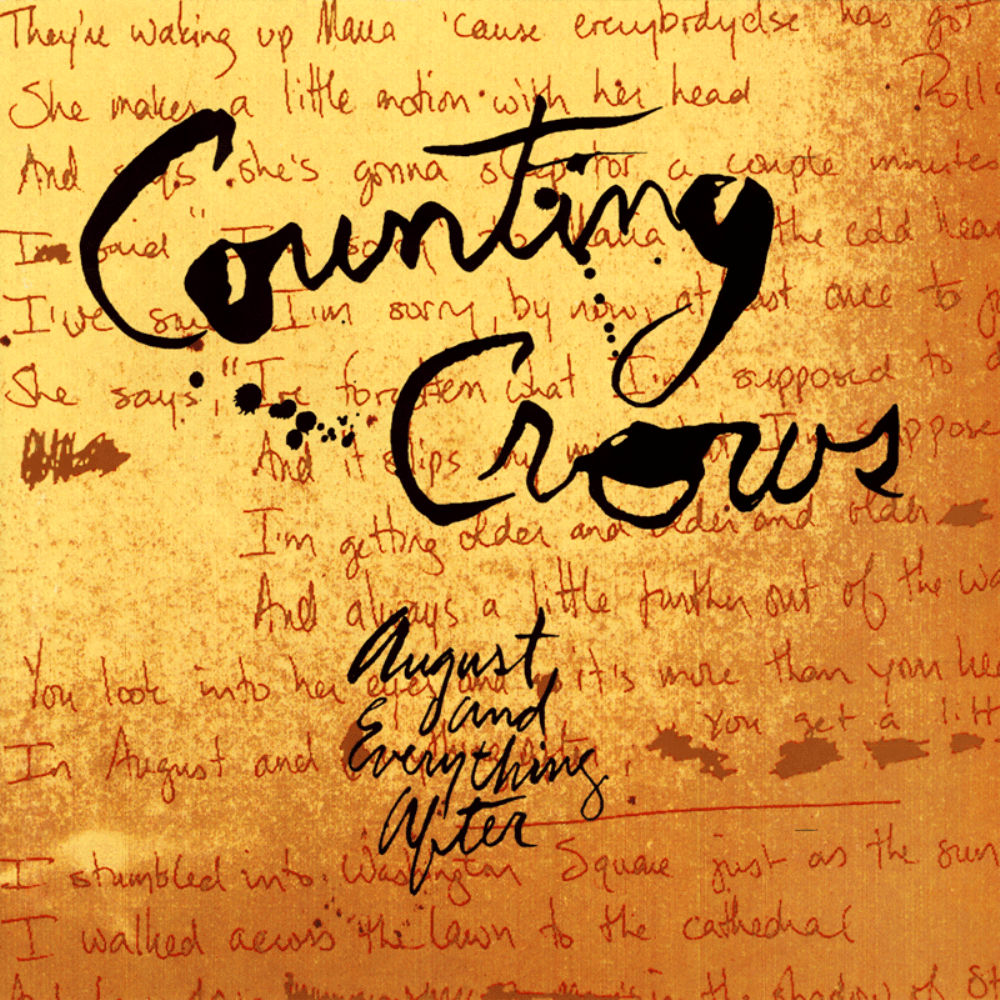 They're waking up Maria 'cause everybody else has got
She makes a little motion with her head
And says she's gonna sleep for a couple minutes
Counting
I'm said "I'm sorry" to Maria the cold hear
I've said I'm sorry, by now, at least once to
Crows
She says, "I've forgotten what I'm supposed to
And it slips my mind that I'm suppose
I'm getting older and older and older
And always a little further out of the wa
August
and
Everything
After
You look into her eyes and it's more than your hea
You get a litt
In August and
I stumbled into Washington Square just as the sun
I walked across the lawn to the cathedral
in the shadow of St